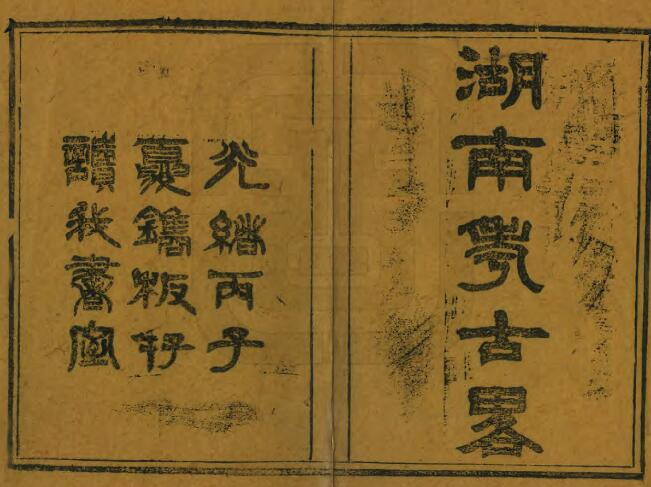 湖南考古畧
光緒丙子
夏鐫板存
讀我書室